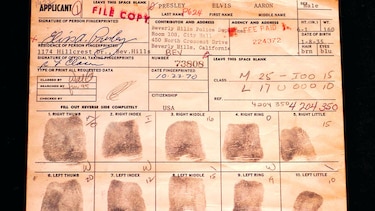 APPLICANT
FILE COPY
PRESLEY ELVIS AARON Male
LAST NAME FIRST NAME MIDDLE NAME
SIGNATURE OF PERSON FINGERPRINTED
Elvis Presley
CONTRIBUTOR AND ADDRESS
Beverly Hills Police Dept
Room 100, City Hall
450 North Crescent Drive
Beverly Hills, California
REV
AGENCY AND STATE
FEE PAID
224372
RESIDENCE OF PERSON FINGERPRINTED
1174 Hillcrest Dr., Bev. Hills
DATE OF BIRTH
1-8-35
brn blu
SIGNATURE OF OFFICIAL TAKING FINGERPRINTS
TYPE OR PRINT ALL REQUESTED DATA
DATE FINGERPRINTED
10-23-70
NUMBER
73808
CLASS
M 25 - I00 15
L 17 U 000 10
CLASSIFIED
SEARCHED
REF
4204350
4 204 350
FILL OUT REVERSE COMPLETELY
USA
1. RIGHT THUMB
2. RIGHT INDEX
3. RIGHT MIDDLE
4. RIGHT RING
5. RIGHT LITTLE
6. LEFT THUMB
7. LEFT INDEX
8. LEFT MIDDLE
9. LEFT RING
10. LEFT LITTLE